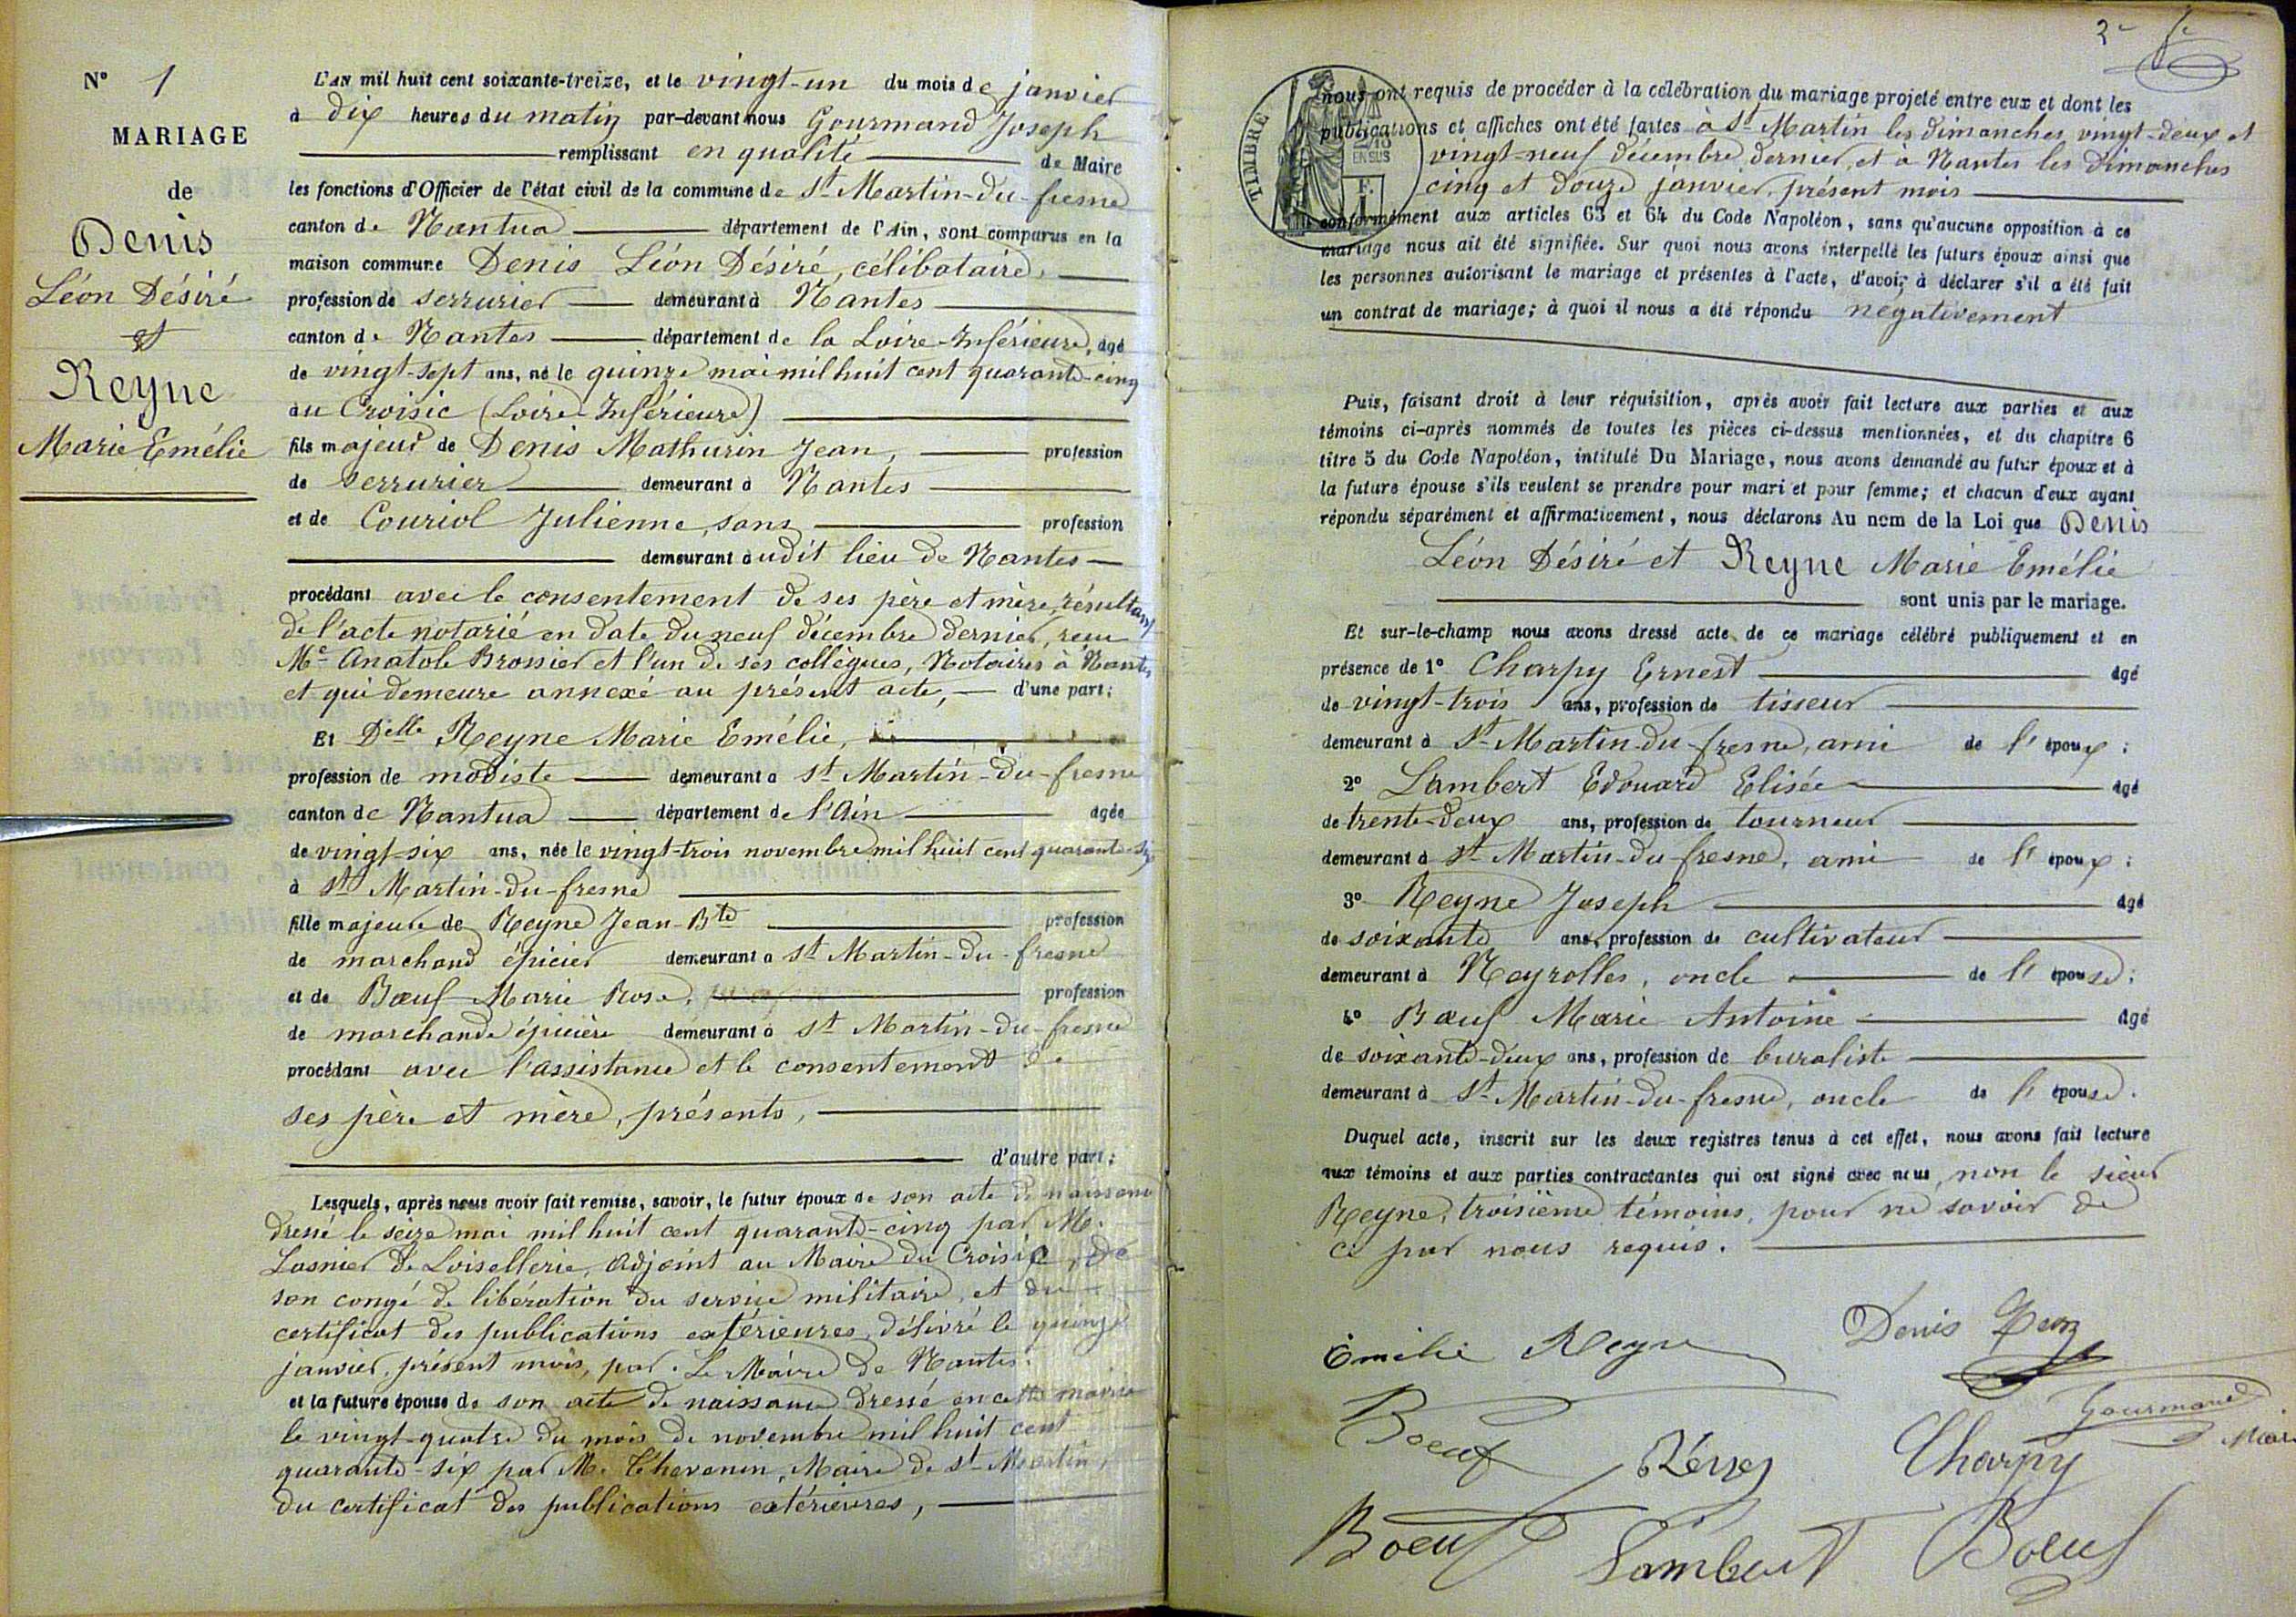 N° 1
MARIAGE
de
Denis
Léon Désiré
et
Reyne
Marie Emélie
L'AN mil huit cent soixante-treize, et le vingt-un du mois de janvier
à dix heures du matin par-devant nous Gourmand Joseph
remplissant en qualité de Maire
les fonctions d'Officier de l'état civil de la commune de St Martin-du-fresne
canton de Nantua département de l'Ain, sont comparus en la
maison commune Denis Léon Désiré, célibataire,
profession de serrurier demeurant à Nantes
canton de Nantes département de la Loire-Inférieure, âgé
de vingt-sept ans, né le quinze mai mil huit cent quarante-cinq
au Croisic (Loire-Inférieure)
fils majeur de Denis Mathurin Jean, profession
de serrurier demeurant à Nantes
et de Couriol Julienne, sans profession
demeurant audit lieu de Nantes
procédant avec le consentement de ses père et mère, résultant
de l'acte notarié en date du neuf décembre dernier, reçu
Me Anatole Brossier et l'un de ses collègues, Notaires à Nantes
et qui demeure annexé au présent acte, d'une part;
Et Delle Reyne Marie Emélie,
profession de modiste demeurant à St Martin-du-fresne
canton de Nantua département de l'Ain agée
de vingt-six ans, née le vingt-trois novembre mil huit cent quarante-six
à St Martin-du-fresne
fille majeure de Reyne Jean-Bte profession
de marchand épicier demeurant à St Martin-du-fresne
et de Bœuf Marie Rose, profession
de marchande épicière demeurant à St Martin-du-fresne
procédant avec l'assistance et le consentement de
ses père et mère, présents,
d'autre part;
Lesquels, après nous avoir fait remise, savoir, le futur époux de son acte de naissance
dressé le seize mai mil huit cent quarante-cinq par M.
Lasnier de Loisellerie, adjoint au Maire du Croisic, de
son congé de libération du service militaire, et du
certificat des publications extérieures, délivré le quinze
janvier, présent mois, par Le Maire de Nantes.
et la future épouse de son acte de naissance dressé en cette mairie
le vingt-quatre du mois de novembre mil huit cent
quarante-six par M. Thevenin, Maire de St Martin,
du certificat des publications extérieures,
TIMBRE
2/10
EN SUS
nous ont requis de procéder à la célébration du mariage projeté entre eux et dont les
publications et affiches ont été faites à St Martin les dimanches vingt-deux et
vingt-neuf décembre dernier, et à Nantes les Dimanches
cinq et douze janvier, présent mois
conformément aux articles 63 et 64 du Code Napoléon, sans qu'aucune opposition à ce
mariage nous ait été signifiée. Sur quoi nous avons interpellé les futurs époux ainsi que
les personnes autorisant le mariage et présentes à l'acte, d'avoir à déclarer s'il a été fait
un contrat de mariage; à quoi il nous a été répondu négativement
Puis, faisant droit à leur réquisition, après avoir fait lecture aux parties et aux
témoins ci-après nommés de toutes les pièces ci-dessus mentionnées, et du chapitre 6
titre 5 du Code Napoléon, intitulé Du Mariage, nous avons demandé au futur époux et à
la future épouse s'ils veulent se prendre pour mari et pour femme; et chacun d'eux ayant
répondu séparément et affirmativement, nous déclarons Au nom de la Loi que Denis
Léon Désiré et Reyne Marie Emélie
sont unis par le mariage.
Et sur-le-champ nous avons dressé acte de ce mariage célébré publiquement et en
présence de 1° Charpy Ernest âgé
de vingt-trois ans, profession de tisseur
demeurant à St Martin-du-fresne, ami de l'époux;
2° Lambert Edouard Elisée âgé
de trente-deux ans, profession de tourneur
demeurant à St Martin-du-fresne, ami de l'époux;
3° Reyne Joseph âgé
de soixante ans, profession de cultivateur
demeurant à Neyrolles, oncle de l'épouse;
4° Bœuf Marie Antoine âgé
de soixante-deux ans, profession de buraliste
demeurant à St Martin-du-fresne, oncle de l'épouse.
Duquel acte, inscrit sur les deux registres tenus à cet effet, nous avons fait lecture
aux témoins et aux parties contractantes qui ont signé avec nous, non le sieur
Reyne, troisième témoins, pour ne savoir de
ce par nous requis.
Emélie Reyne Denis Léon
Gourmand
Maire
Boeuf Charpy
Boeuf Lambert Boeuf